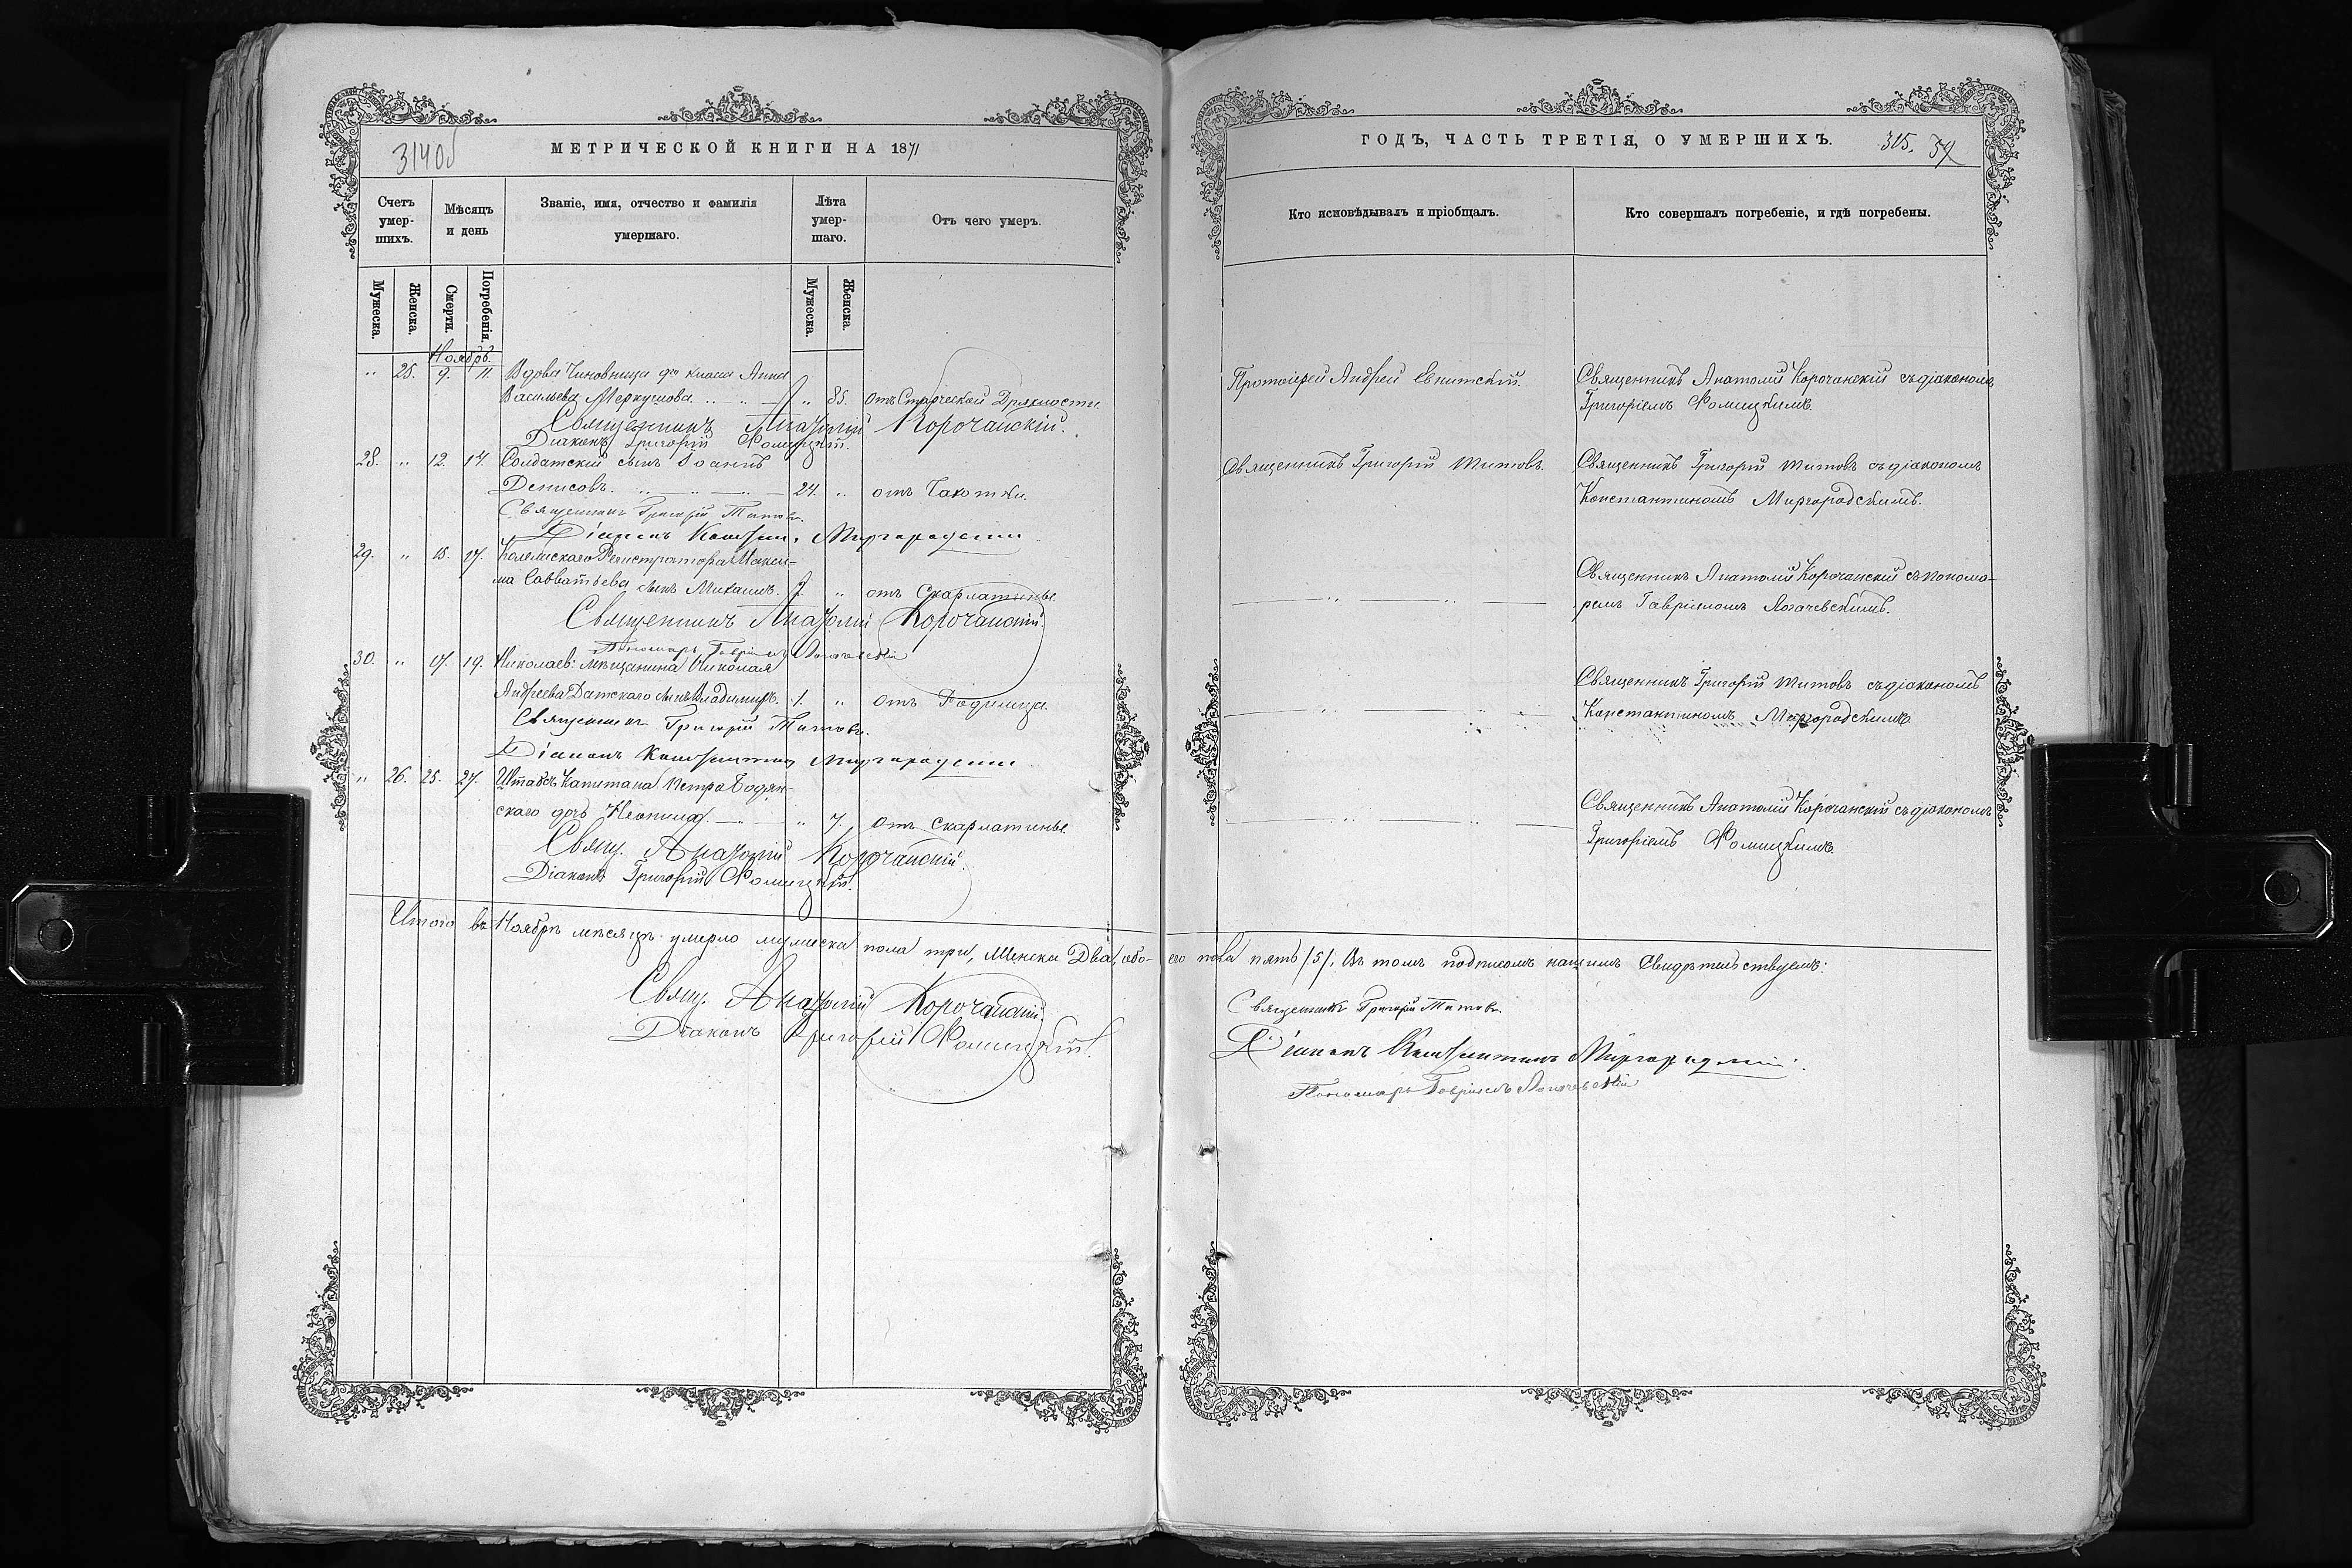 314об
МЕТРИЧЕСКОЙ КНИГИ НА 1871
Счетъ умер-шихъ.
Мѣсяцъ и день
Званіе, имя, отчество и фамилія умершаго.
Лѣта умер-шаго.
Отъ чего умеръ.
Мужеска.
Женска.
Смерти.
Погребенія.
Мужеска.
Женска.
Ноябрь.
" 25. 9. 11. Вдова Чиновница 9го класса Анна
Васильева Меркушова " 85. отъ Старческой Дряхлости.
Священникъ Анатолій Корочанскій.
Діаконъ Григорій Фомицкій.
28. " 12. 14. Солдатскій сынъ Іоаннъ
Денисовъ. 24. " отъ Чахотки.
Священникъ Григорій Титовъ.
Діаконъ Констан. Миргородскій
29. " 15. 17. Коллежскаго Регистратора Макси-
ма Савватьева сынъ Михаилъ. 7. " отъ Скарлатины.
Священникъ Анатолій Корочанскій.
Пономарь Гавріилъ Логачевскій
30. " 17. 19. Николаев: мѣщанина Николая
Андреева Датскаго сынъ Владимиръ. 1. " отъ Родимца.
Священникъ Григорій Титовъ.
Діаконъ Константинъ Миргородскій
" 26. 25. 27. Штабсъ Капитана Петра Бодян-
скаго дочь Неонила. " 7. отъ скарлатины.
Свящ. Анатолій Корочанскій.
Діаконъ Григорій Фомицкій.
Итого въ Ноябрѣ мѣсяцѣ умерло мужеска пола три, Женска Два, обо-
Свящ. Анатолій Корочанскій
Діаконъ Григорій Фомицкій.
ГОДЪ, ЧАСТЬ ТРЕТІЯ, О УМЕРШИХЪ.
315.
Кто исповѣдывалъ и пріобщалъ.
Кто совершалъ погребеніе, и гдѣ погребены.
Протоіерей Андрей
Священникъ Анатолій Корочанскій съ діакономъ
Григоріемъ Фомицкимъ.
Священникъ Григорій Титовъ.
Священникъ Григорій Титовъ съ діакономъ
Константиномъ Миргородскимъ.
Священникъ Анатолій Корочанскій съ понома-
ремъ Гавріиломъ Логачевскимъ.
Священникъ Григорій Титовъ съ діакономъ
Константиномъ Миргородскимъ
Священникъ Анатолій Корочанскій съ діакономъ
Григоріемъ Фомицкимъ
его пола пять /5/. Въ томъ подписомъ нашимъ Свидѣтельствуемъ:
Священникъ Григорій Титовъ.
Діаконъ Константинъ Миргородскій.
Пономарь Гавріилъ Логачевскій